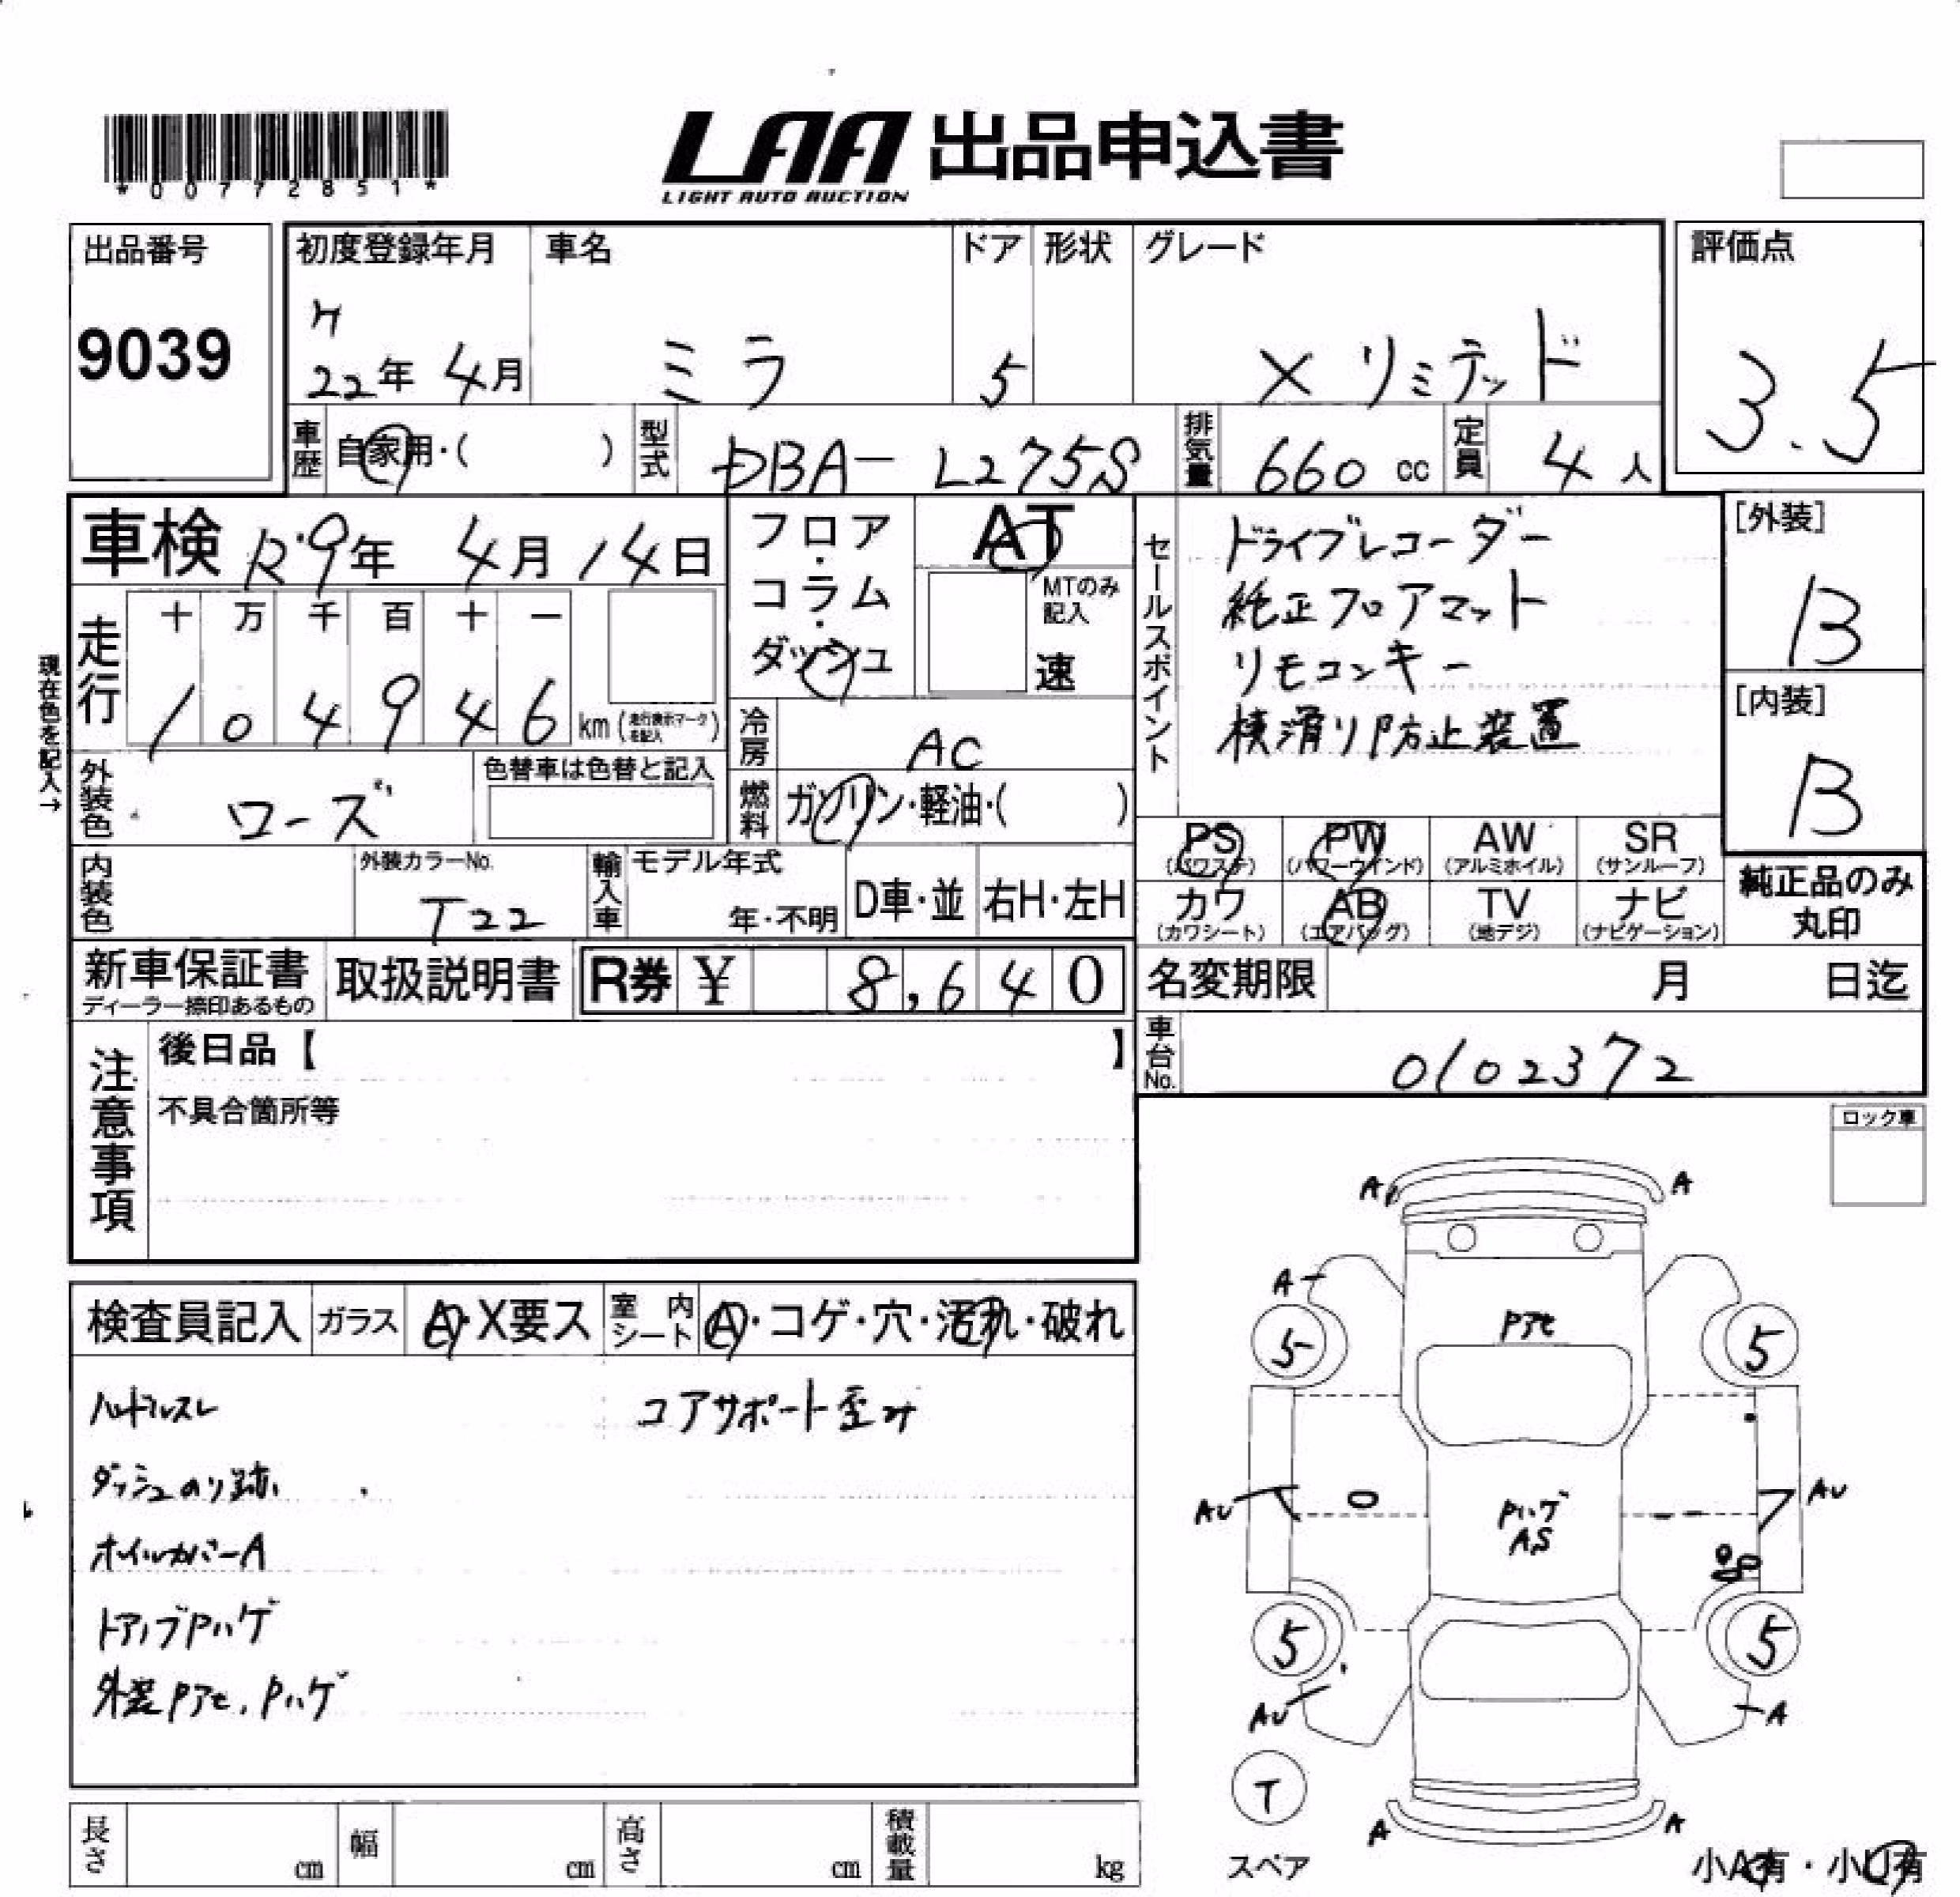 *00772851*
LAA 出品申込書
LIGHT AUTO AUCTION
出品番号
9039
初度登録年月
H
22年 4月
車名
ミラ
ドア
5
形状
グレード
Xリミテッド
評価点
3.5
車歴
自家用・( )
型式
DBA- L275S
排気量
660 cc
定員
4 人
車検 R9年 4月14日
フロア
・
コラム
・
ダッシュ
AT
MTのみ
記入
速
セールスポイント
ドライブレコーダー
純正フロアマット
リモコンキー
横滑り防止装置
[外装]
B
[内装]
B
現在色を記入→
走行
十 万 千 百 十 一
1 0 4 9 4 6 km (走行表示マークを記入)
冷房
AC
外装色
ローズ
色替車は色替と記入
燃料
ガソリン・軽油・( )
PS
(パワステ)
PW
(パワーウインド)
AW
(アルミホイル)
SR
(サンルーフ)
内装色
外装カラーNo.
T22
輸入車
モデル年式
年・不明
D車・並
右H・左H
カワ
(カワシート)
AB
(エアバッグ)
TV
(地デジ)
ナビ
(ナビゲーション)
純正品のみ
丸印
新車保証書
ディーラー捺印あるもの
取扱説明書
R券 ¥ 8,640
名変期限
月 日迄
注意事項
後日品【 】
不具合箇所等
車台No.
0102372
ロック車
検査員記入
ガラス
A・X要ス
室内シート
A・コゲ・穴・汚れ・破れ
ハンドルスレ
コアサポート歪み
ダッシュのり跡
ホイルカバーA
ドアノブPハゲ
外装Pアセ、Pハゲ
A
A
A
Pアセ
5
5
AU
Pハゲ
AS
AU
5
5
AU
A
T
スペア
A
A
小A有・小U有
長さ
cm
幅
cm
高さ
cm
積載量
kg